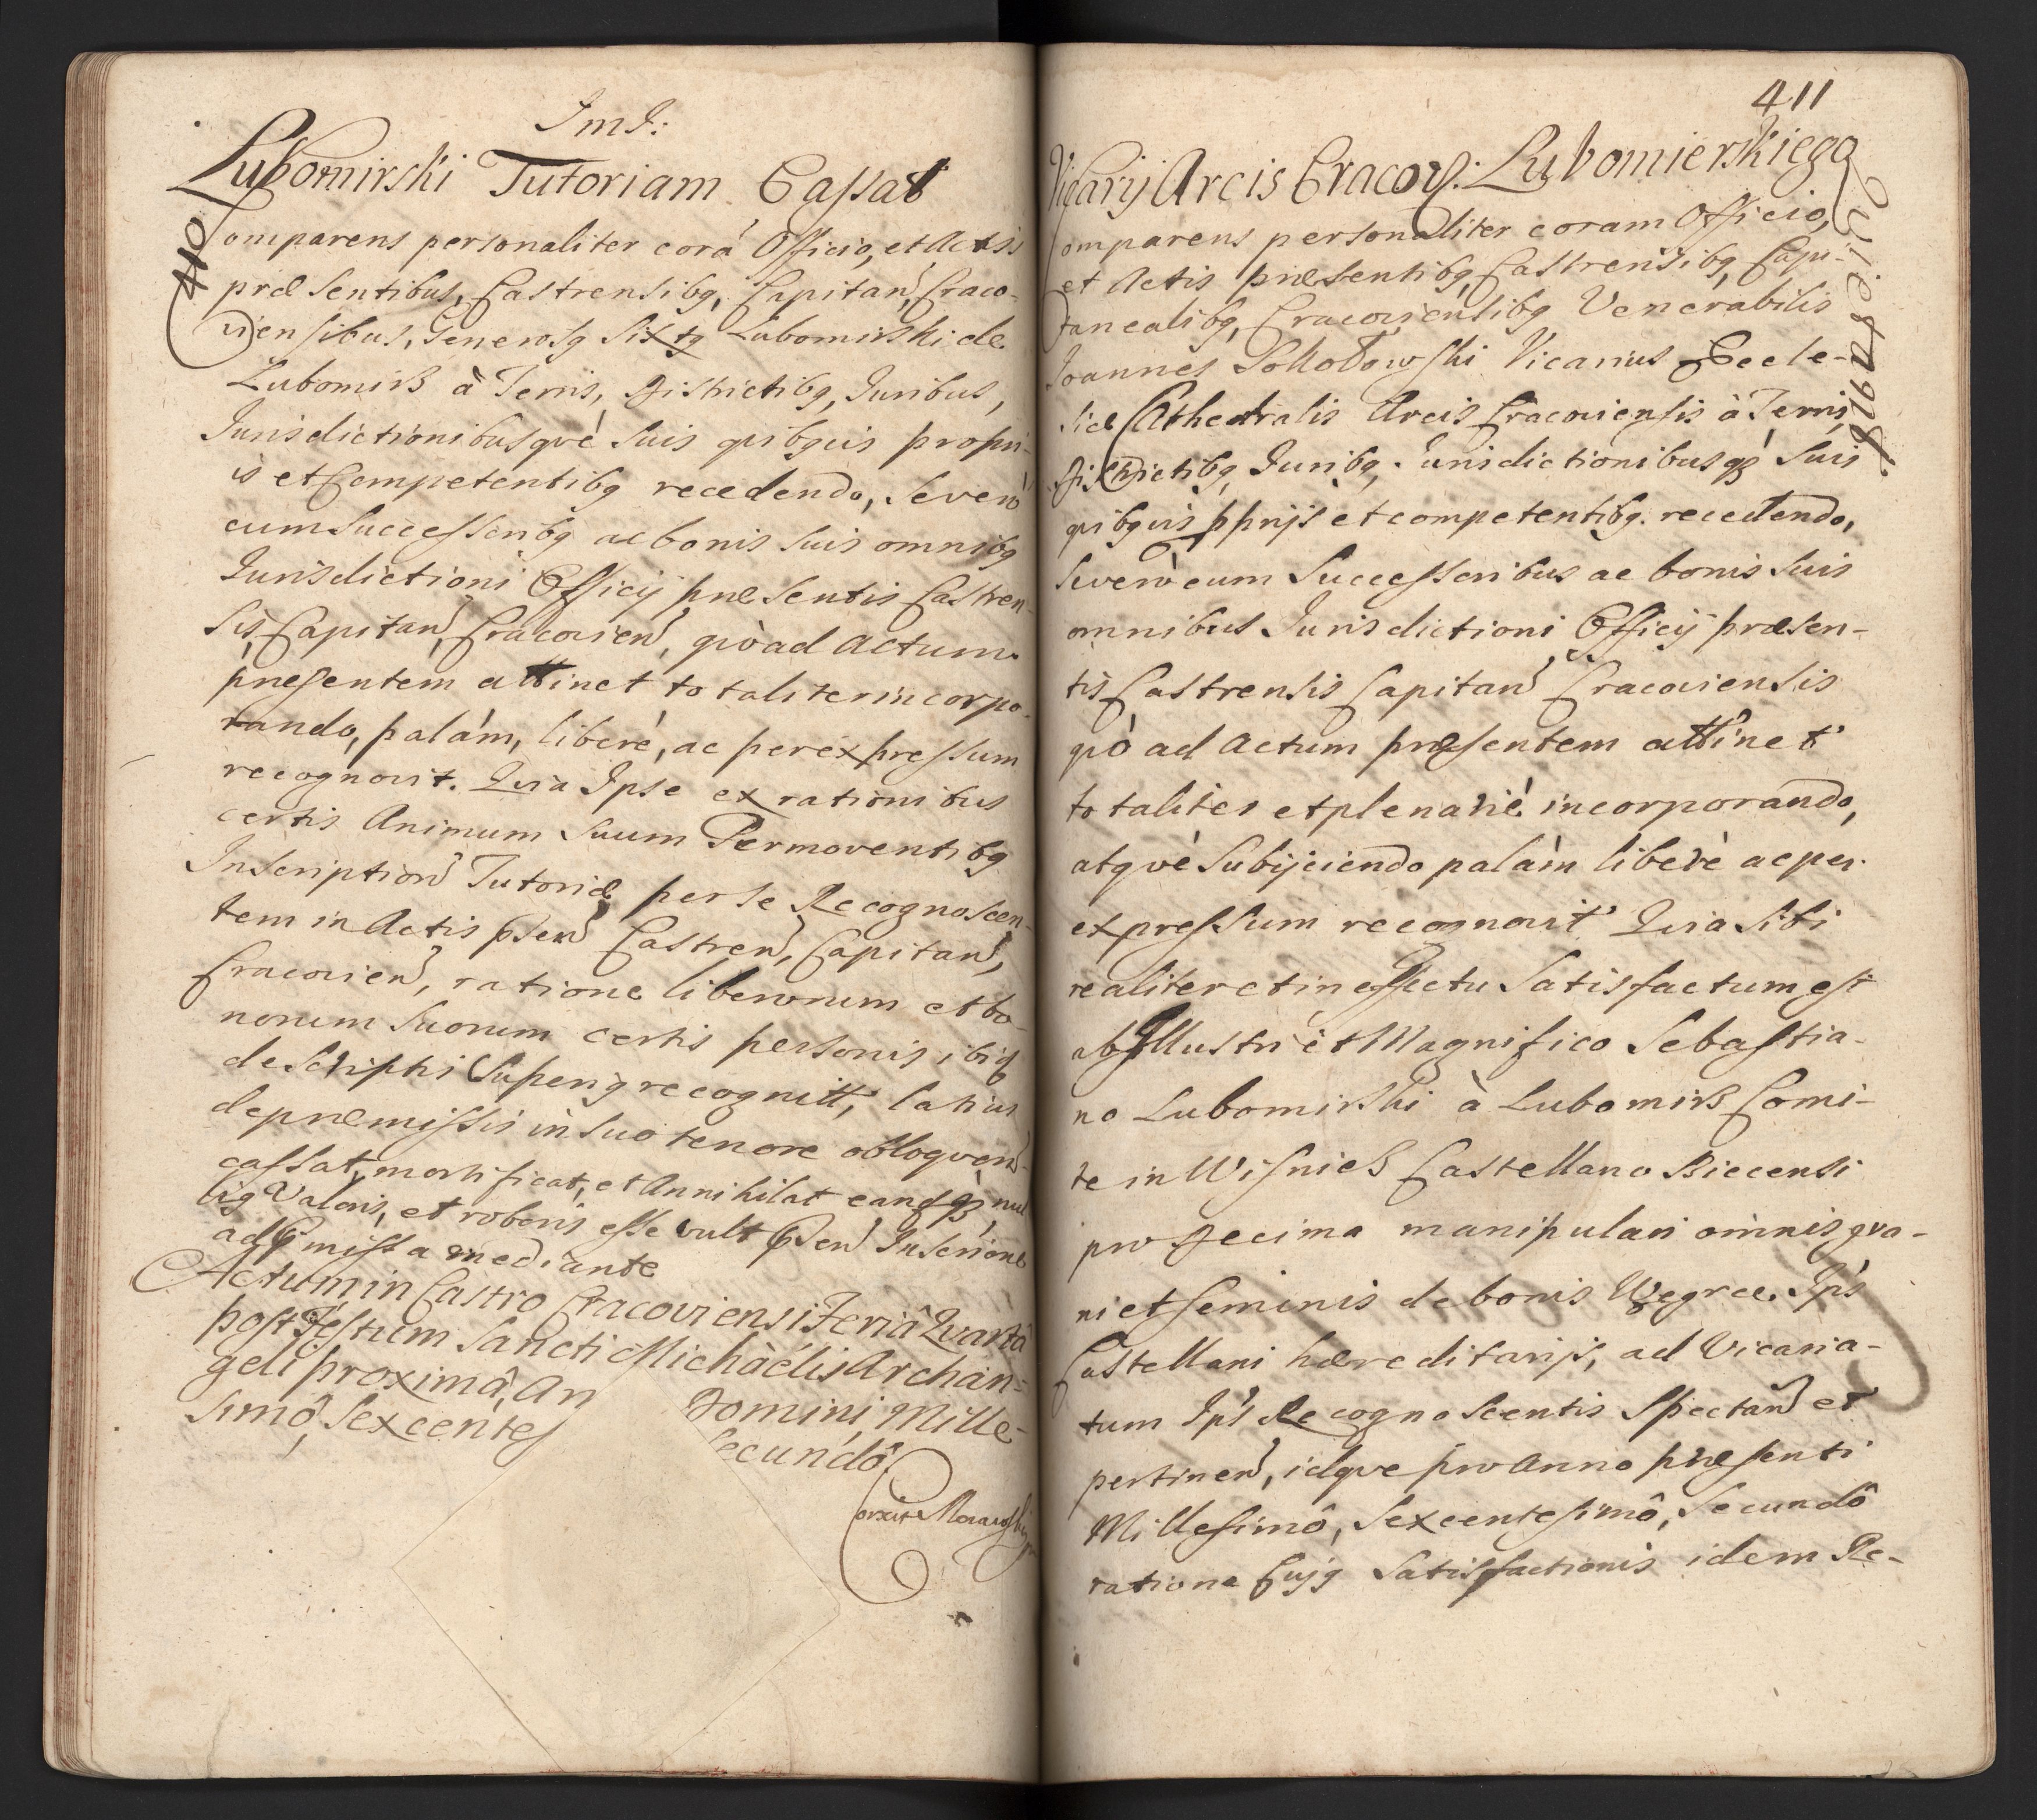 ImJ:
Lubomirski Tutoriam Cassat
410
Comparens personaliter corá Officio, et Actis
præsentibus, Castrensibq, Capitan, Craco-
viensibus, Generosq Sixtq Lubomirski de
Lubomirz à Terris, Districtibq, Juribus,
Jurisdictionibusqvè suis qvibqvis propri-
is et Competentibq recedendo, se vero
cum successoribq ac bonis suis omnibq
Jurisdictioni Officij præsentis Castren-
sis, Capitan, Cracovien, qvò ad Actum
præsentem attinet totaliter incorpo-
rando, palám, liberé, ac per expressum
recognovit. Qvia Ipse ex rationibus
certis Animum suum Permoventibq
Inscription Tutoriæ per se Recognoscen-
tem in Actis psen Castren, Capitan,
Cracovien, ratione liberorum et bo-
norum suorum certis personis ibiq
descriptis superiq recognitt, latius
de præmissis in suo tenore obloqven-
cassat, mortificat, et Annihilat eamqq, nul-
liq Valoris, et roboris esse vult psen Inscrione
ad pmissa mediante
Actum in Castro Cracoviensi Feriâ Qvartâ
post Festum Sancti Michàélis Archan=
geli proximâ, An Domini, Mille-
simô, Sexcentes secundô
411
Vicarij Arcis Cracov: Lubomierskiego
Qvietat
Comparens personaliter coram Officio,
et Actis præsentibq, Castrensibq, Capi-
tanealibq, Cracoviensibq Venerabilis
Joannes Sokołowski Vicarius Eccle-
siæ Cathedralis Arcis Cracoviensis à Terris,
Districtibq, Juribq, Jurisdictionibusqq suis
qvibqvis pprijs et competentibq. recedendo,
se verò cum Successoribus ac bonis suis
omnibus Jurisdictioni Officij præsen-
tis Castrensis Capitan Cracoviensis
qvò ad Actum præsentem attinet
totaliter et plenarié incorporando,
atqvè subijciendo palàm liberè ac per
expressum recognovit Qvia sibi
realiter et in effectu satisfactum est
ab Illustri et Magnifico Sebastia-
no Lubomirski à Lubomirz Comi-
te in Wisnicz Castellano Biecensi
pro Decima manipulari omnis gra-
ni et seminis de bonis Wegrce. Ips
Castellani hæreditarijs, ad Vicaria-
tum Ips Recognoscentis Spectan et
pertinen, idqve pro Anno præsenti
Millesimô, Sexcentesimô, Secundô
ratione Cujq satisfactionis idem Re-